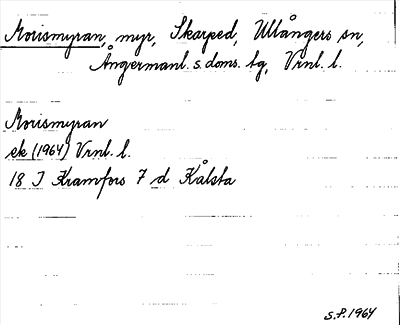 Morismyran, myr, Skarped, Ullångers sn,
Ångermanl. s. doms. tg, Vrnl. l.
Morismyran
ek (1964) Vrnl. l.
18 I Kramfors 7 d Kålsta
S.P. 1964